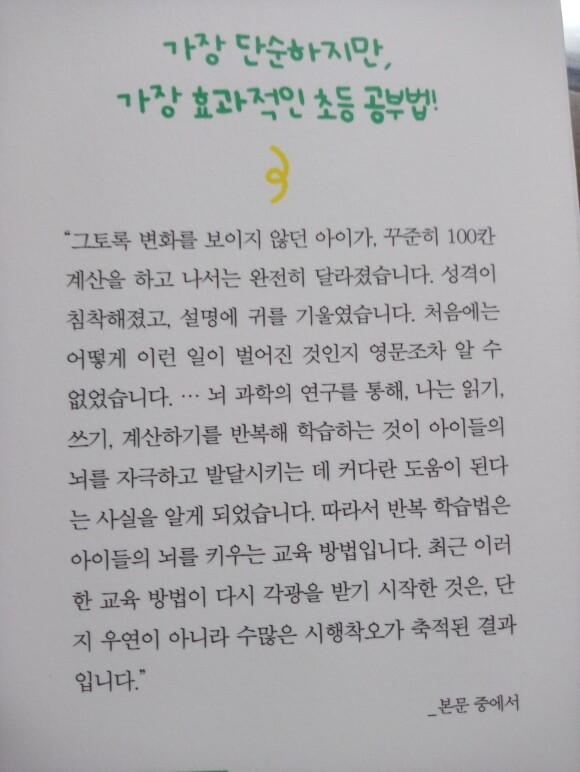 가장 단순하지만,
가장 효과적인 초등 공부법!
“그토록 변화를 보이지 않던 아이가, 꾸준히 100칸
계산을 하고 나서는 완전히 달라졌습니다. 성격이
침착해졌고, 설명에 귀를 기울였습니다. 처음에는
어떻게 이런 일이 벌어진 것인지 영문조차 알 수
없었습니다. … 뇌 과학의 연구를 통해, 나는 읽기,
쓰기, 계산하기를 반복해 학습하는 것이 아이들의
뇌를 자극하고 발달시키는 데 커다란 도움이 된다
는 사실을 알게 되었습니다. 따라서 반복 학습법은
아이들의 뇌를 키우는 교육 방법입니다. 최근 이러
한 교육 방법이 다시 각광을 받기 시작한 것은, 단
지 우연이 아니라 수많은 시행착오가 축적된 결과
입니다.”
_본문 중에서